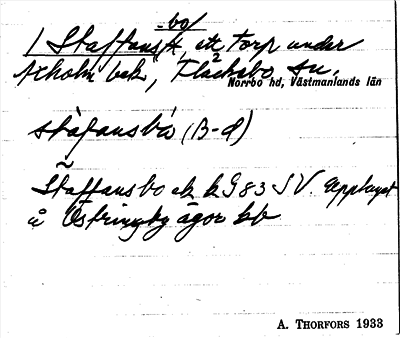 -bo/
1 Staffans, ett torp under
bek, Fläckebo sn.
Norrbo hd, Västmanlands län
stàfansbò (B-d)
~
Staffansbo ek kG 83 SV. Upptaget
å Östringby ägor kb
A. THORFORS 1933